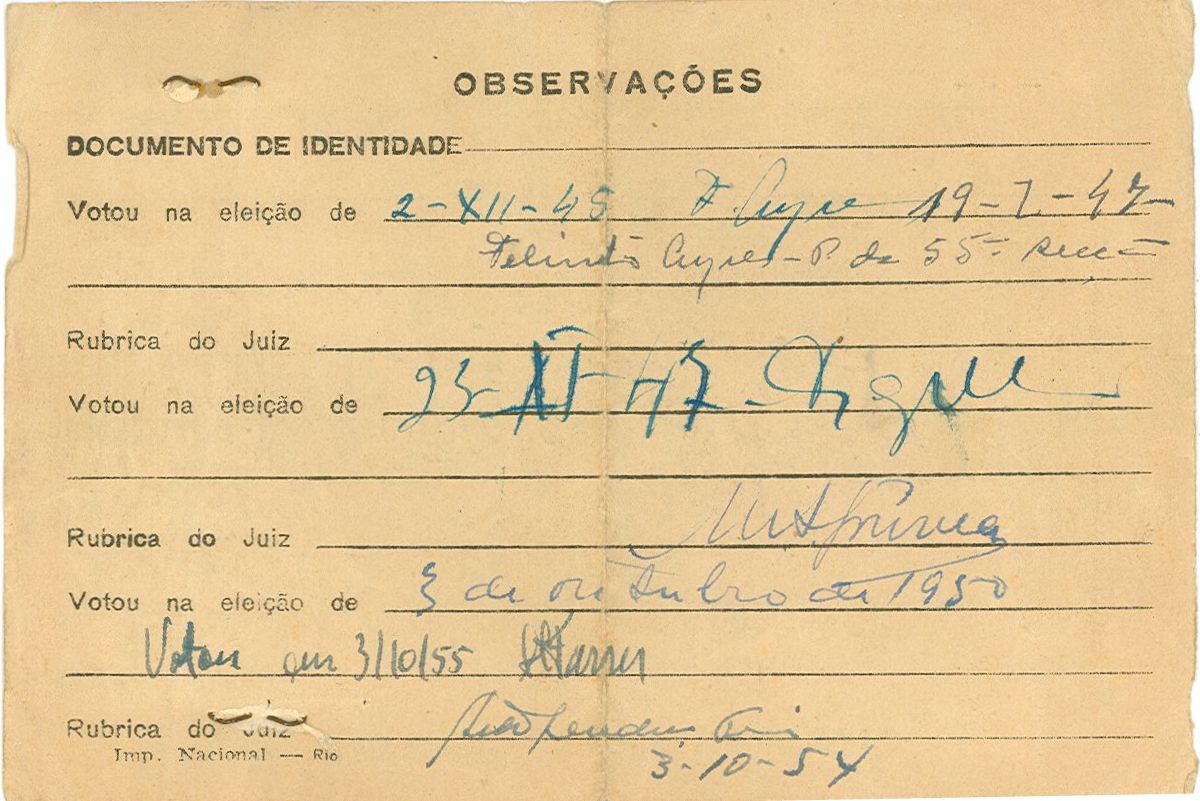 OBSERVAÇÕES
DOCUMENTO DE IDENTIDADE
Votou na eleição de 2-XII-45 19-1-47
Felinto Ayres - P. da 55ª secção
Rubrica do Juiz
Votou na eleição de 23-XI-47
Rubrica do Juiz
Votou na eleição de 3 de outubro de 1950
Votou em 3/10/55
Rubrica do Juiz
Imp. Nacional — Rio
3-10-54